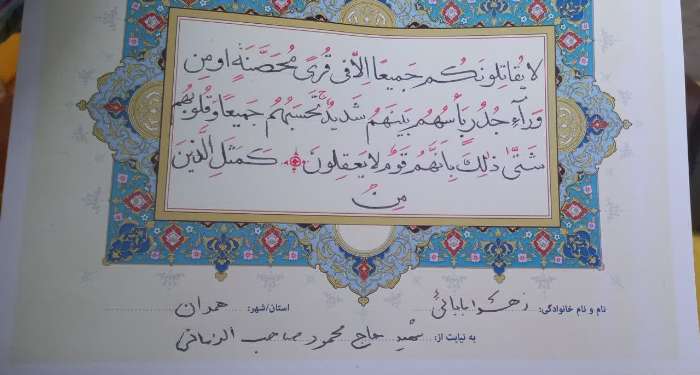 لا يُقَاتِلُونَكُم جَمِيعًا إِلَّا فِي قُرًى مُحَصَّنَةٍ أَوْ مِن
وَرَآءِ جُدُرٍ بَأْسُهُم بَيْنَهُم شَدِيدٌ ج تَحْسَبُهُم جَمِيعًا وَقُلُوبُهُم
شَتَّىٰ ذٰلِكَ بِأَنَّهُم قَوْمٌ لا يَعْقِلُونَ كَمَثَلِ الَّذِينَ
مِن
نام و نام خانوادگی: زهرا بابائی استان/شهر: همدان
به نیابت از: شهید حاج محمود صاحب الزمانی